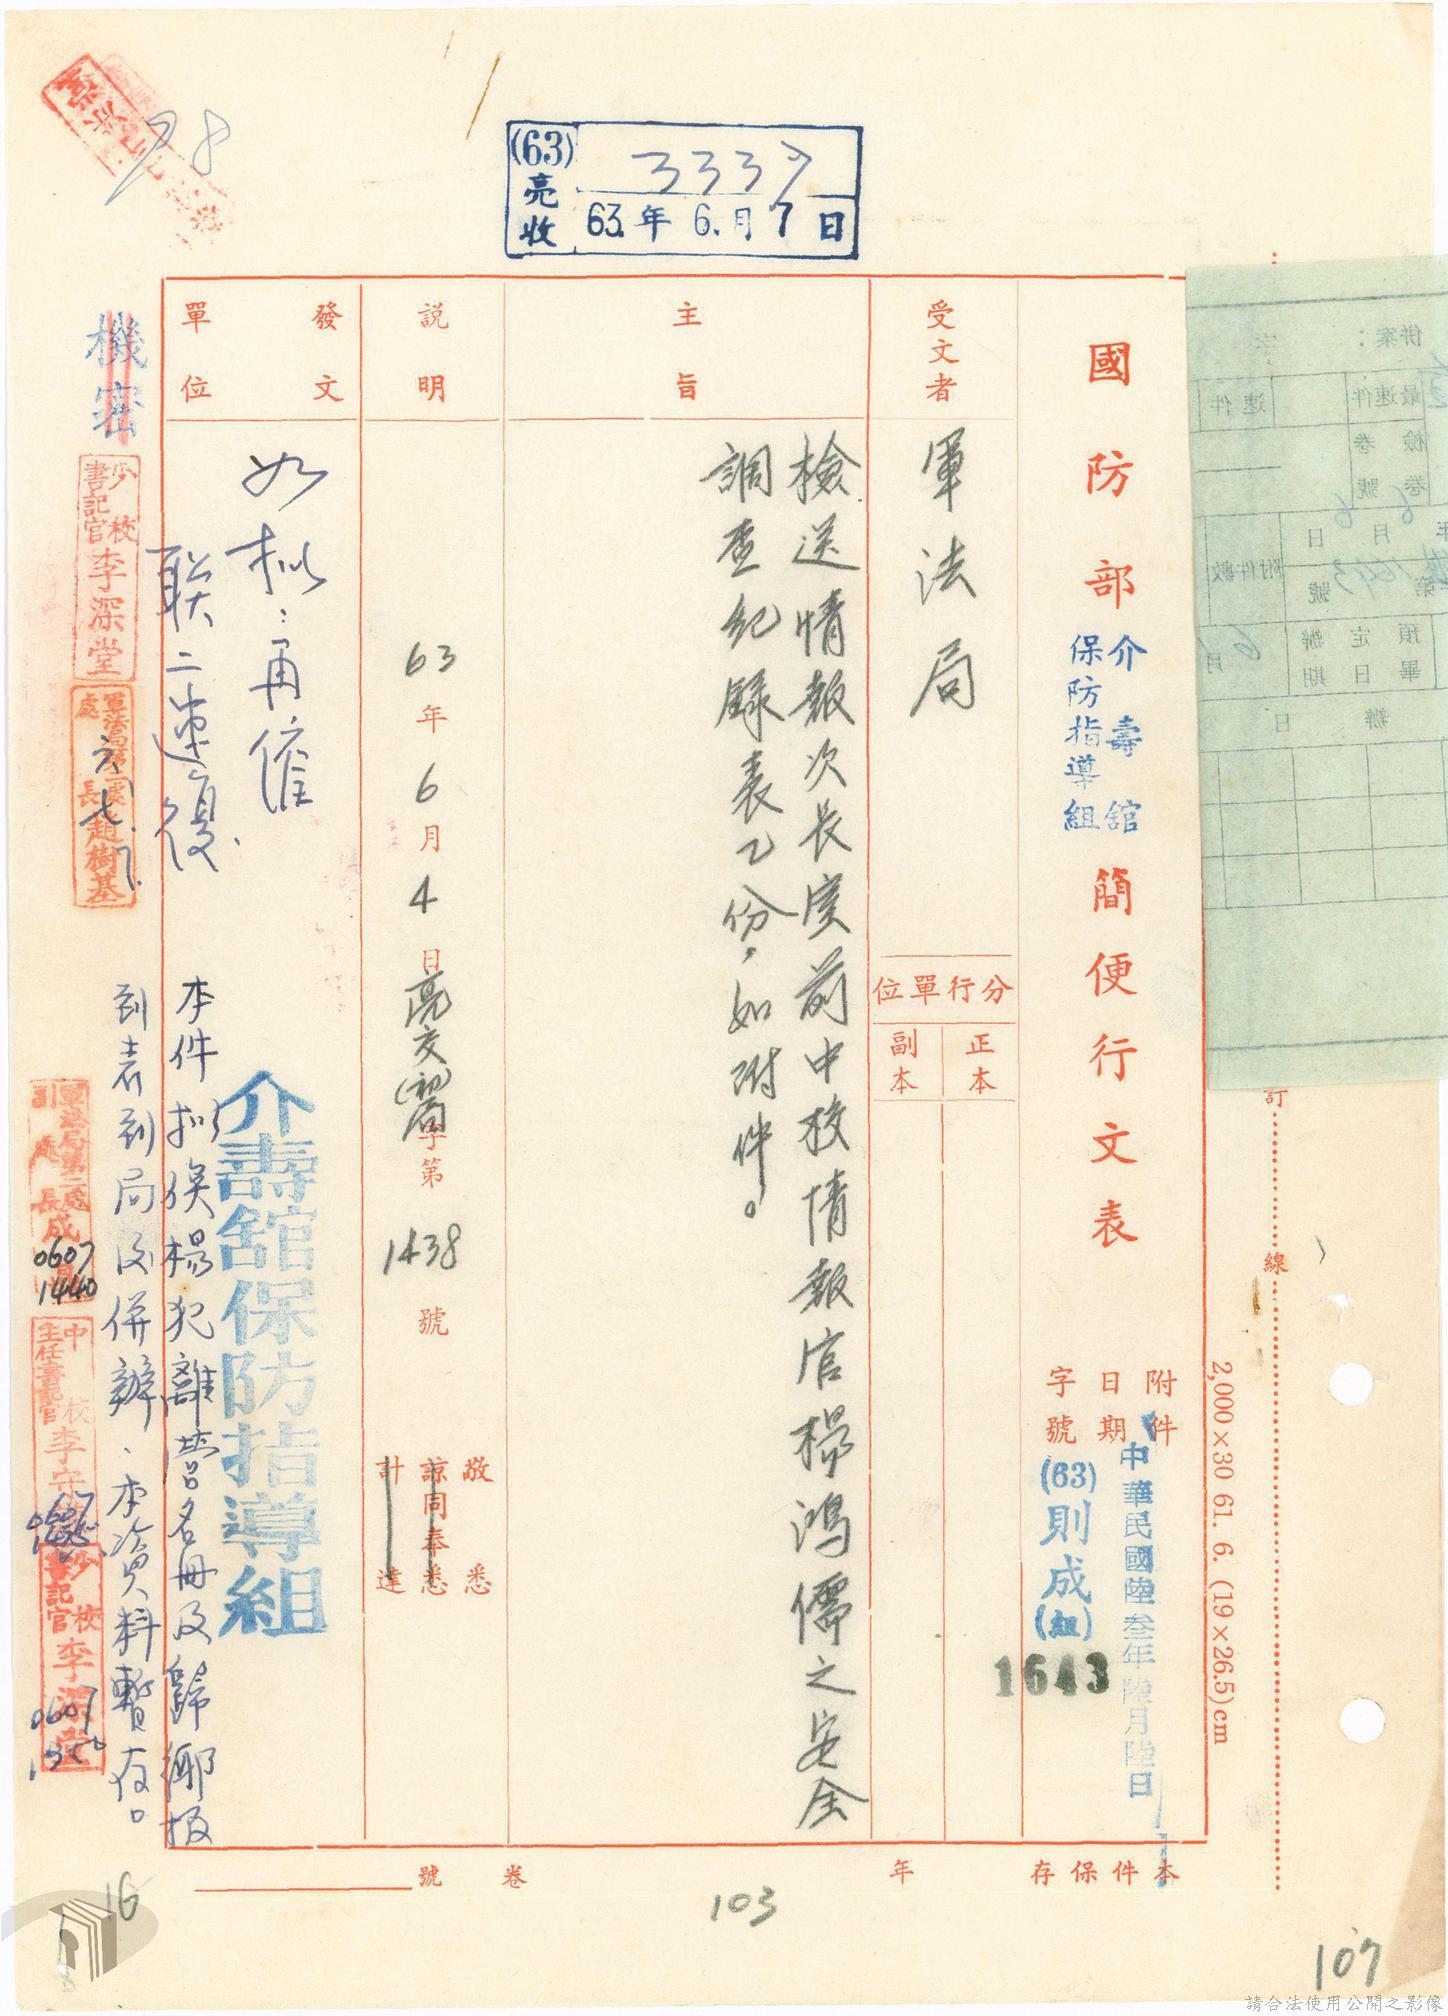 (63)亮收
3337
63.年6.月7日
國防部
介壽舘
保防指導組
簡便行文表
附件
日期 中華民國陸叁年陸月陸日
字號 (63)則成(組)1643
受文者
軍法局
分行單位
正本
副本
主旨
檢送情報次長室前中校情報官楊鴻儒之安全
調查紀錄表乙份,如附件。
說明
63年6月4日亮交(初)簡字第1438號
敬悉
諒同奉悉
計達
發文單位
介壽舘保防指導組
如拟:再催
联二速復.
本件拟俟楊犯離營名冊及歸鄉报
到表到局後併辦、本資料暫存。
機密
少校書記官李深堂
軍法局第二處處長趙樹基
六.七.
軍法局第二處副處長成
0607
1440
中校主任書記官李守
0607
少校書記官李深堂
0607
本件保存 年 卷 號
訂
線
2,000×30 61. 6. (19×26.5)cm
併案:
字
最速件
速件
檢卷
卷號
年6月6日
第1643號
附件數
預定辦畢日期
6月
辦
日
16
103
107
請合法使用公開之影像